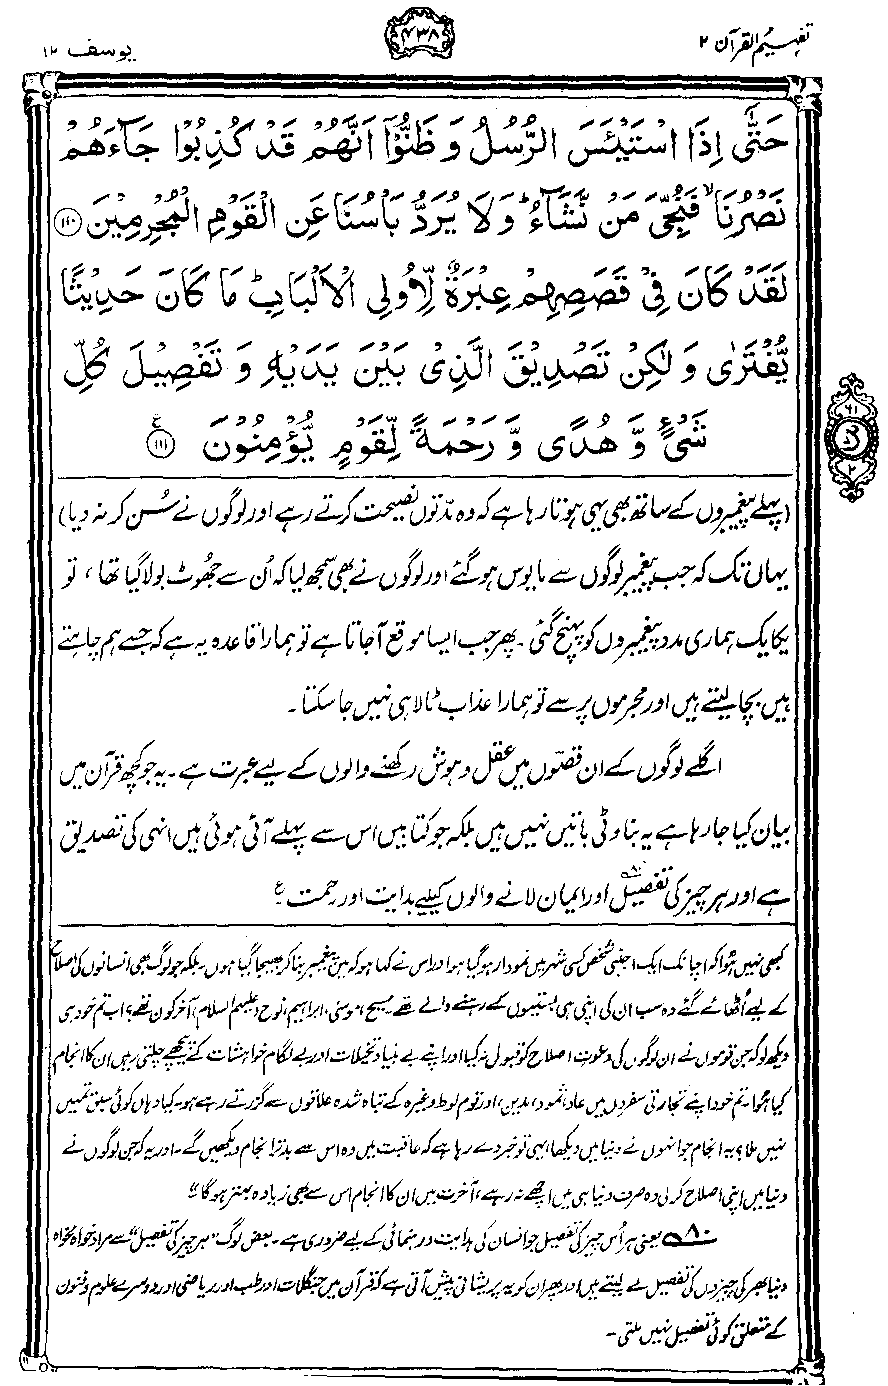 تفہیم القرآن ۲
۴۳۸
یوسف ۱۲
حَتّٰۤى اِذَا اسْتَيْئَسَ الرُّسُلُ وَ ظَنُّوْۤا اَنَّهُمْ قَدْ كُذِبُوْا جَآءَهُمْ
نَصْرُنَا ۙ فَنُجِّىَ مَنْ نَّشَآءُ ؕ وَلَا يُرَدُّ بَاْسُنَا عَنِ الْقَوْمِ الْمُجْرِمِيْنَ ﴿۱۱۰﴾
لَقَدْ كَانَ فِىْ قَصَصِهِمْ عِبْرَةٌ لِّاُولِى الْاَلْبَابِ ؕ مَا كَانَ حَدِيْثًا
يُّفْتَرٰى وَ لٰكِنْ تَصْدِيْقَ الَّذِىْ بَيْنَ يَدَيْهِ وَ تَفْصِيْلَ كُلِّ
شَىْءٍ وَّ هُدًى وَّ رَحْمَةً لِّقَوْمٍ يُّؤْمِنُوْنَ ﴿۱۱۱﴾ ع
(پہلے پیغمبروں کے ساتھ بھی یہی ہوتا رہا ہے کہ وہ مدّتوں نصیحت کرتے رہے اور لوگوں نے سُن کر نہ دیا)
یہاں تک کہ جب پیغمبر لوگوں سے مایوس ہو گئے اور لوگوں نے بھی سمجھ لیا کہ اُن سے جھُوٹ بولا گیا تھا، تو
یکایک ہماری مدد پیغمبروں کو پہنچ گئی۔ پھر جب ایسا موقع آجاتا ہے تو ہمارا قاعدہ یہ ہے کہ جسے ہم چاہتے
ہیں بچا لیتے ہیں اور مجرموں پر سے تو ہمارا عذاب ٹالا ہی نہیں جا سکتا۔
اگلے لوگوں کے ان قصّوں میں عقل و ہوش رکھنے والوں کے لیے عبرت ہے۔ یہ جو کچھ قرآن میں
بیان کیا جا رہا ہے یہ بناوٹی باتیں نہیں ہیں بلکہ جو کتابیں اس سے پہلے آئی ہوئی ہیں انہی کی تصدیق
ہے اور ہر چیز کی تفصیل ۸۰ اور ایمان لانے والوں کیلیے ہدایت اور رحمت ع
کبھی نہیں ہُوا کہ اچانک ایک اجنبی شخص کسی شہر میں نمودار ہو گیا ہو اور اس نے کہا ہو کہ میں پیغمبر بنا کر بھیجا گیا ہوں۔ بلکہ جو لوگ بھی انسانوں کی اصلاح
کے لیے اُٹھائے گئے وہ سب ان کی اپنی ہی بستیوں کے رہنے والے تھے۔ مسیح، موسیٰ، ابراہیم، نوح (علیہم السلام) آخر کون تھے؟ اب تم خود ہی
دیکھ لو کہ جن قوموں نے ان لوگوں کی دعوتِ اصلاح کو قبول نہ کیا اور اپنے بے بنیاد تخیلات اور بے لگام خواہشات کے پیچھے چلتی رہیں ان کا انجام
کیا ہُوا۔ تم خود اپنے تجارتی سفروں میں عاد، ثمود، مدین، اور قوم لوط وغیرہ کے تباہ شدہ علاقوں سے گزرتے رہے ہو۔ کیا وہاں کوئی سبق تمہیں
نہیں ملا؟ یہ انجام جو انہوں نے دنیا میں دیکھا، یہی تو خبر دے رہا ہے کہ عاقبت میں وہ اس سے بدتر انجام دیکھیں گے۔ اور یہ کہ جن لوگوں نے
دنیا میں اپنی اصلاح کر لی وہ صرف دنیا ہی میں اچھے نہ رہے، آخرت میں ان کا انجام اس سے بھی زیادہ بہتر ہو گا"
۸۰ یعنی ہر اُس چیز کی تفصیل جو انسان کی ہدایت و رہنمائی کے لیے ضروری ہے۔ بعض لوگ "ہر چیز کی تفصیل" سے مراد خواہ مخواہ
دنیا بھر کی چیزوں کی تفصیل لے لیتے ہیں اور پھر ان کو یہ پریشانی پیش آتی ہے کہ قرآن میں جنگلات اور طب اور ریاضی اور دوسرے علوم و فنون
کے متعلق کوئی تفصیل نہیں ملتی۔